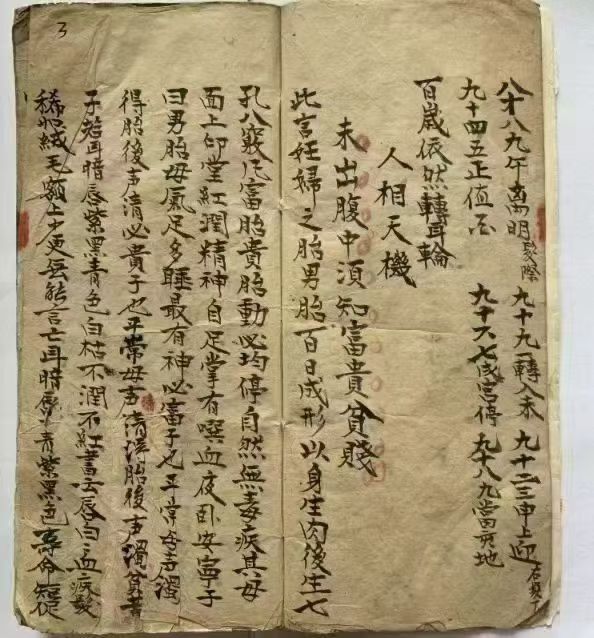 八十八九午离明髮際 九十九一轉入未 九十二三申上迎
九十四五正值酉 九十六七戌宮停 九十八九當亥地
百歲依然轉耳輪
人相天機
未出腹中須知富貴貧賤
此言妊婦之胎男胎百日成形以身生肉後生七
孔八竅凡富胎貴胎動必均停自然無毒疾其母
面上印堂紅潤精神自足掌有噀血夜卧安寧子
曰男胎母氣足多睡最有神必富子也平常母声濁
得胎後声清必貴子也平常母声清胎後声濁貧者
子若耳暗唇紫黑青色白枯不潤不紅書云唇白血疾髮
稀如絨毛額上少更無能言亡耳暗唇青紫黑色壽命短促
3